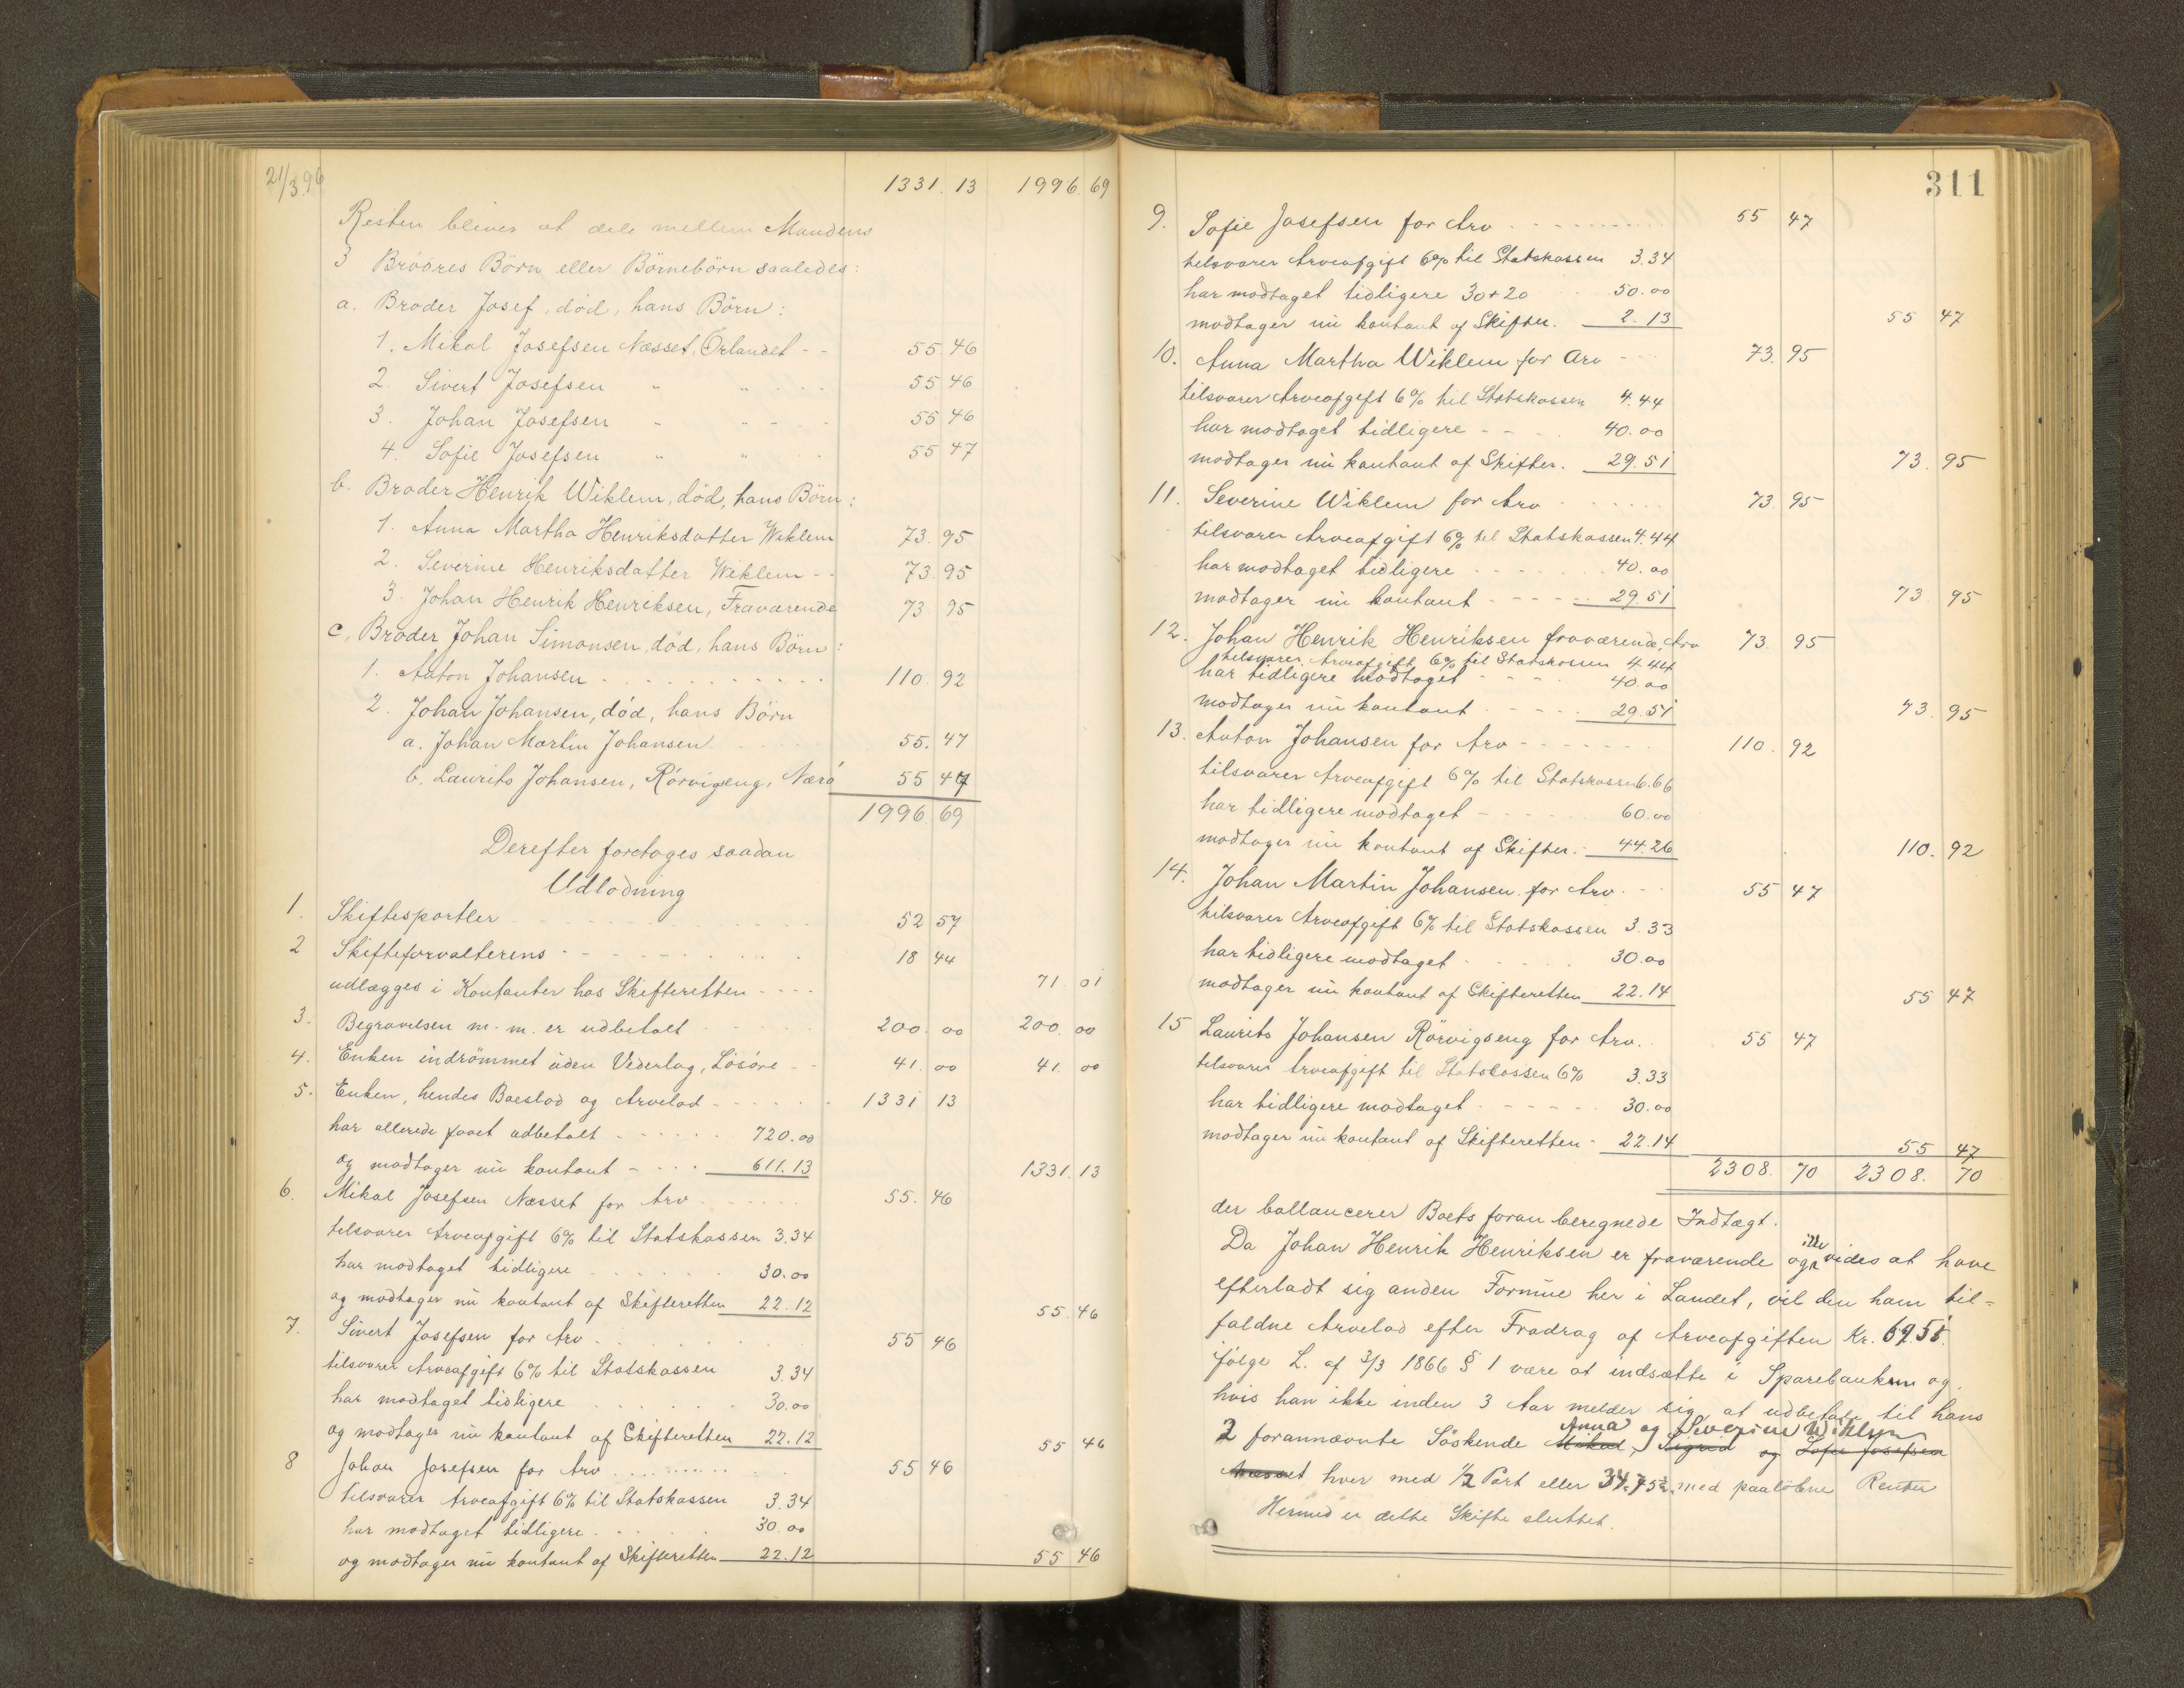 21/3.96 1331.13 1996.69
Resten bliver at dele mellem Mandens
3 Brödres Börn eller Börnebörn saaledes:
a. Broder Josef, död, hans Börn:
1. Mikal Josefsen Næsset, Örlandet - - 55.46
2. Sivert Josefsen " " - - - 55 46
3. Johan Josefsen " " - - - 55 46
4. Sofie Josefsen " " - - 55 47
b. Broder Henrik Wiklem, död, hans Börn:
1. Anna Martha Henriksdatter Wiklem 73.95
2. Severine Henriksdatter Wiklem - - 73.95
3. Johan Henrik Henriksen, Fraværende 73 95
c. Broder Johan Simonsen, död, hans Börn:
1. Anton Johansen - - - - - 110.92
2. Johan Johansen, död, hans Börn
a. Johan Martin Johansen - - - 55.47
b. Laurits Johansen, Rörvigseng, Nærö 55 47
1996.69
Derefter foretages saadan
Udlodning
1. Skiftesportler - - - - - 52 57
2 Skifteforvalterens - - - - - 18 44
udlægges i Kontanter hos Skifteretten - - - - 71.01
3. Begravelsen m. m. er udbetalt - - - 200.00 200.00
4. Enken indrömmet uden Vederlag, Lösöre - - 41.00 41.00
5. Enken, hendes Boeslod og Arvelod - - - - - 1331 13
har allerede faaet udbetalt - - - - - 720.00
og modtager nu kontant - - - - 611.13 1331.13
6. Mikal Josefsen Næsset for Arv - - - - 55.46
tilsvarer Arveafgift 6% til Statskassen 3.34
har modtaget tidligere - - - - - 30.00
og modtager nu kontant af Skifteretten 22.12 55.46
7. Sivert Josefsen for Arv - - - 55 46
tilsvarer Arveafgift 6% til Statskassen 3.34
har modtaget tidligere - - - - - 30.00
og modtager nu kontant af Skifteretten 22.12 55 46
8 Johan Josefsen for Arv - - - - - 55 46
tilsvarer Arveafgift 6% til Statskassen 3.34
har modtaget tidligere - - - - 30.00
og modtager nu kontant af Skifteretten 22.12 55 46
311
9. Sofie Josefsen for Arv - - - - - 55 47
tilsvarer Arveafgift 6% til Statskassen 3.34
har modtaget tidligere 30+20 50.00
modtager nu kontant af Skifter. 2.13 55 47
10. Anna Martha Wiklem for Arv - - - 73.95
tilsvarer Arveafgift 6% til Statskassen 4.44
har modtaget tidligere - - - 40.00
modtager nu kontant af Skifter. 29.51 73.95
11. Severine Wiklem for Arv - - - - 73.95
tilsvarer Arveafgift 6% til Statskassen 4.44
har modtaget tidligere - - - - - 40.00
modtager nu kontant - - - - - 29.51 73.95
12. Johan Henrik Henriksen fraværende, Arv 73.95
tilsvarer Arveafgift 6% til Statskassen 4.44
har tidligere modtaget - - - - 40.00
modtager nu kontant - - - - 29.51 73.95
13. Anton Johansen for Arv - - - - - - 110.92
tilsvarer Arveafgift 6% til Statskassen 6.66
har tidligere modtaget - - - - 60.00
modtager nu kontant af Skifter. - 44.26 110.92
14. Johan Martin Johansen for Arv - - - 55 47
tilsvarer Arveafgift 6% til Statskassen 3.33
har tidligere modtaget - - - - 30.00
modtager nu kontant af Skifteretten 22.14 55 47
15 Laurits Johansen Rörvigseng for Arv. 55 47
tilsvarer Arveafgift til Statskassen 6% 3.33
har tidligere modtaget - - - - - 30.00
modtager nu kontant af Skifteretten - 22.14 55 47
2308.70 2308.70
der ballancerer Boets foran beregnede Indtægt.
Da Johan Henrik Henriksen er fraværende og ikke vides at have
efterladt sig anden Formue her i Landet, vil den ham til=
faldne Arvelod efter Fradrag af Arveafgiften Kr. 69.51
fölge L. af 3/3 1866 § 1 være at indsætte i Sparebanken og
hvis han ikke inden 3 Aar melder sig at udbetale til hans
Anna og Severine Wiklem
2 forannævnte Söskende Mikal, Sigrid og Sofie Josefsen
Næsset hver med 1/2 Part eller 34.75½ med paalöbne Renter
Hermed er dette Skifte sluttet.